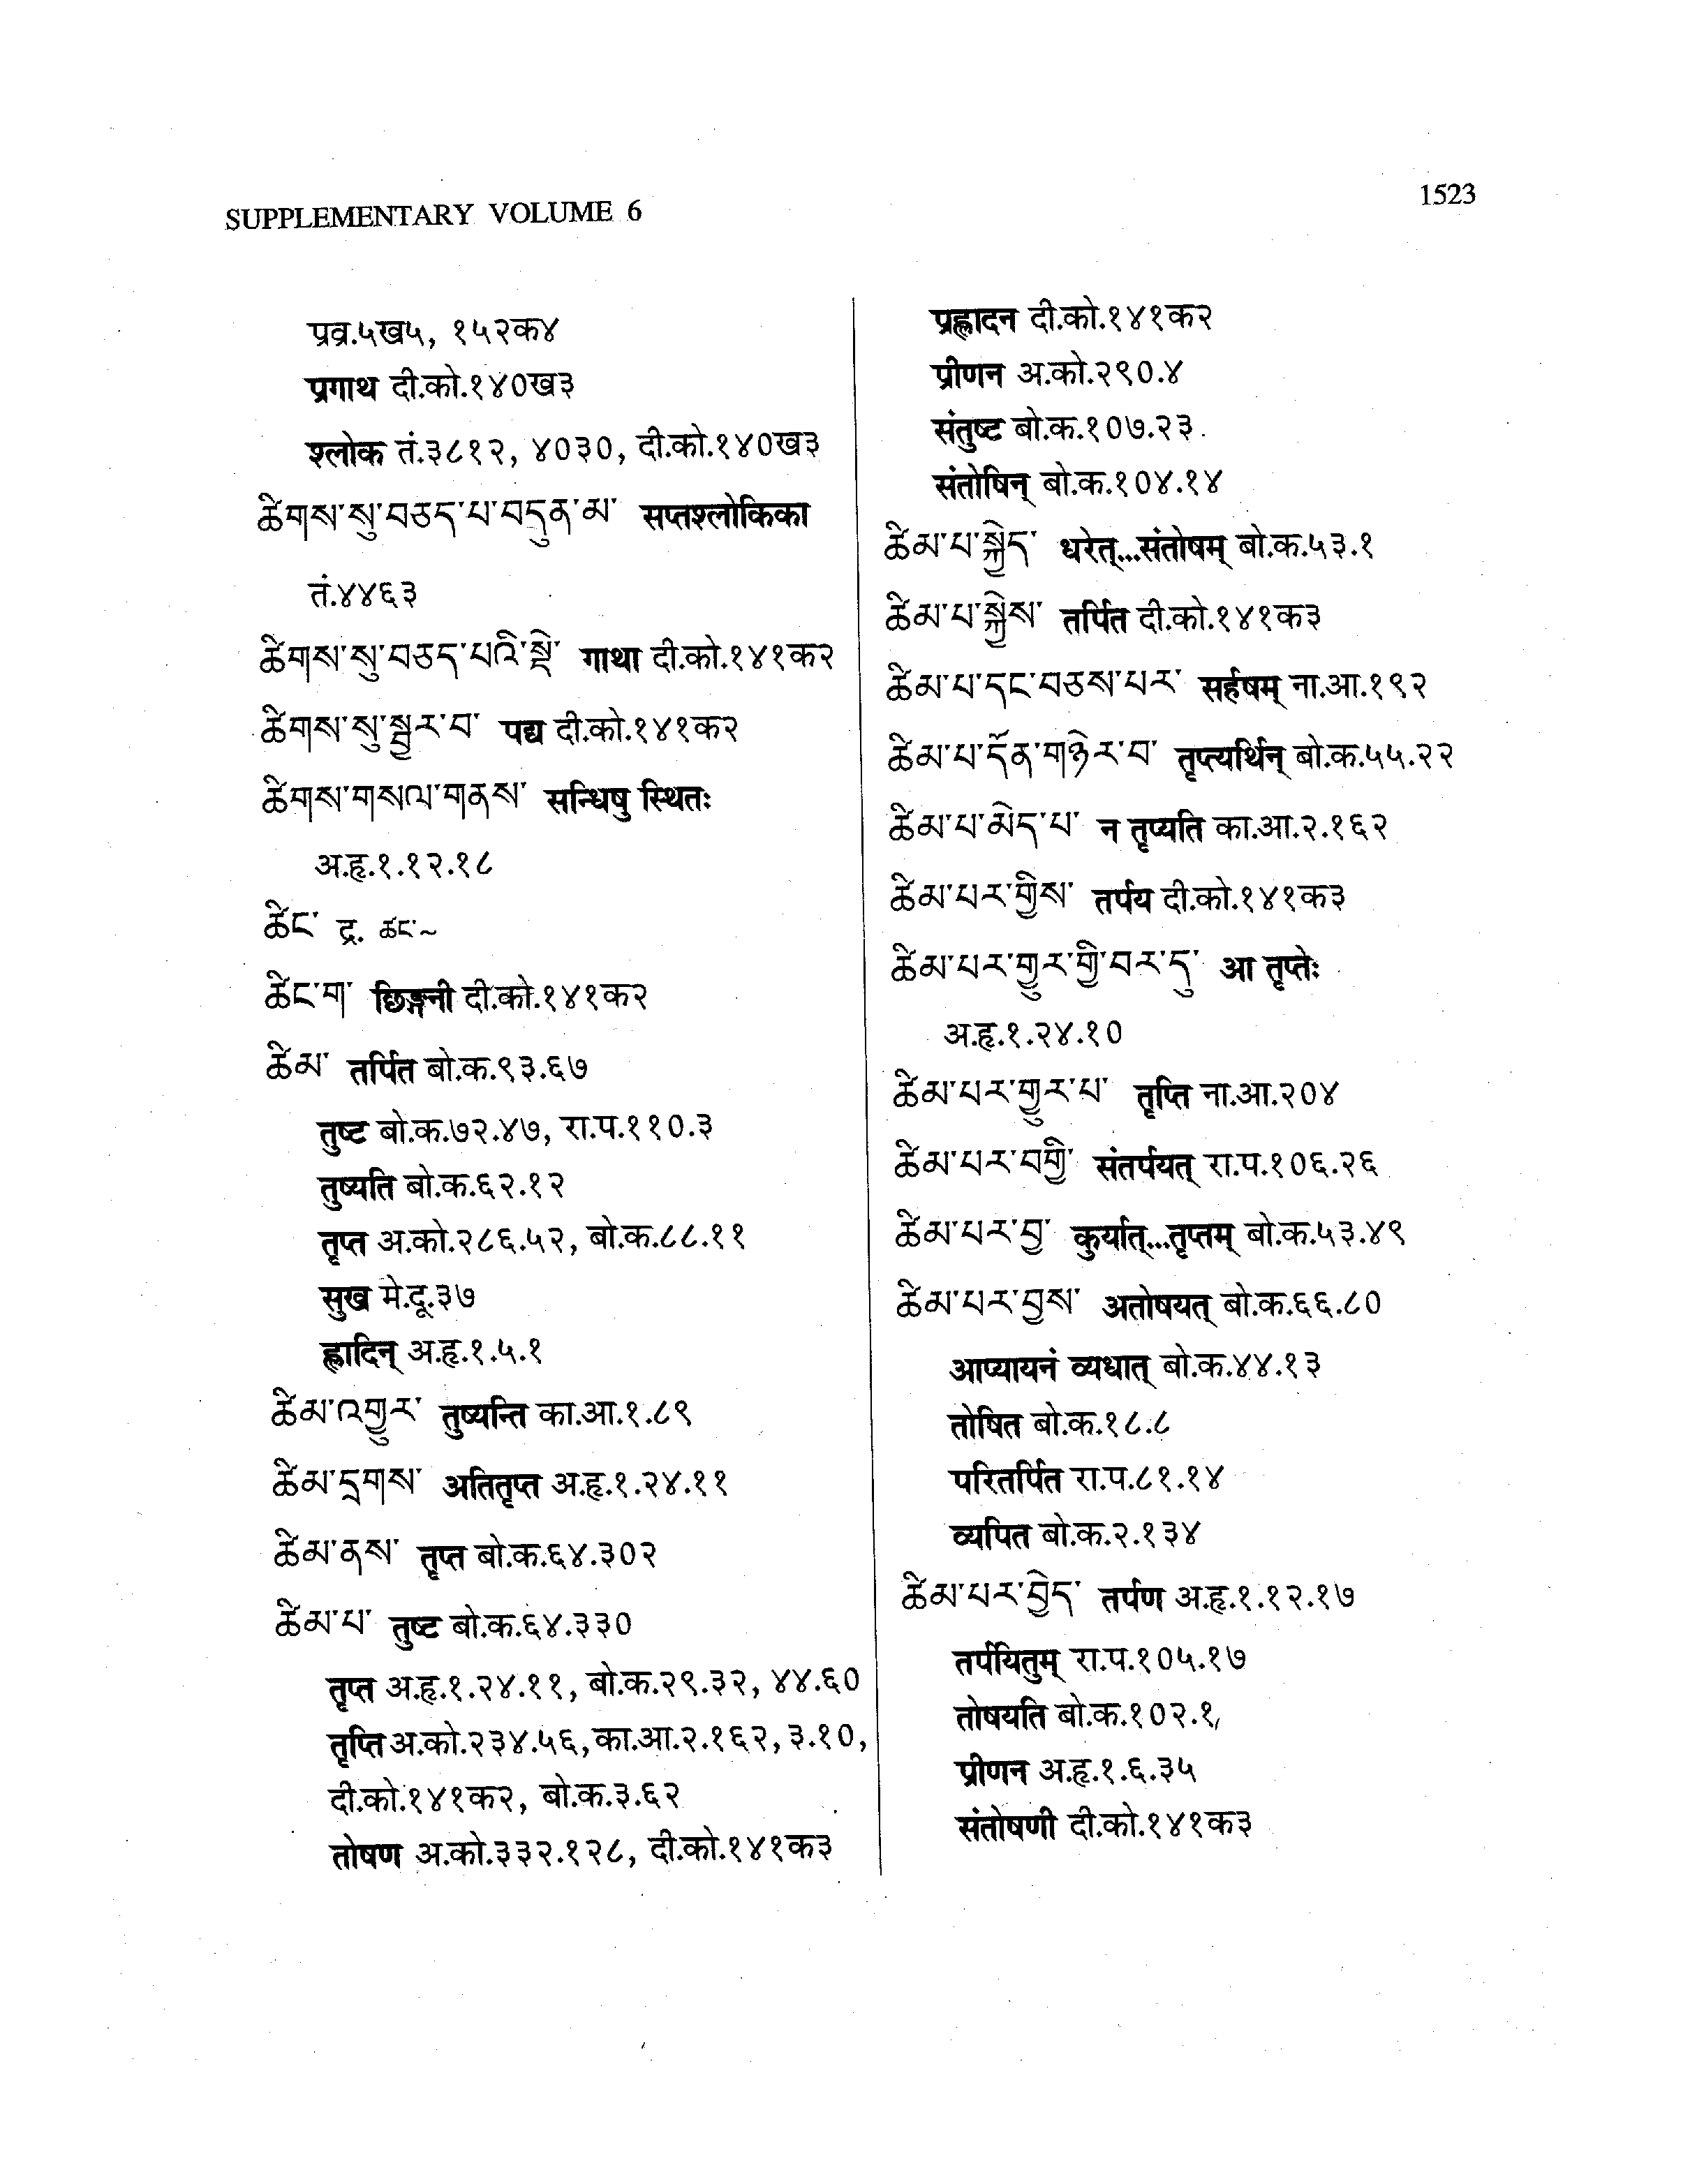 SUPPLEMENTARY VOLUME 6
1523
प्रव्र.५ख५, १५२क४
प्रगाथ दी.को.१४०ख३
श्लोक तं.३८१२, ४०३०, दी.को.१४०ख३
ཚིགས་སུ་བཅད་པ་བདུན་མ་ सप्तश्लोकिका
तं.४४६३
ཚིགས་སུ་བཅད་པའི་སྡེ་ गाथा दी.को.१४१क२
ཚིགས་སུ་སྦྱར་བ་ पद्य दी.को.१४१क२
ཚིགས་གསལ་གནས་ सन्धिषु स्थितः
अ.हृ.१.१२.१८
ཚིང་ द्र. ཚང་~
ཚིང་ག་ छिङ्गनी दी.को.१४१क२
ཚིམ་ तर्पित बो.क.९३.६७
तुष्ट बो.क.७२.४७, रा.प.११०.३
तुष्यति बो.क.६२.१२
तृप्त अ.को.२८६.५२, बो.क.८८.११
सुख मे.दू.३७
ह्लादिन् अ.हृ.१.५.१
ཚིམ་འགྱུར་ तुष्यन्ति का.आ.१.८९
ཚིམ་དྲགས་ अतितृप्त अ.हृ.१.२४.११
ཚིམ་ནས་ तृप्त बो.क.६४.३०२
ཚིམ་པ་ तुष्ट बो.क.६४.३३०
तृप्त अ.हृ.१.२४.११, बो.क.२९.३२, ४४.६०
तृप्ति अ.को.२३४.५६, का.आ.२.१६२, ३.१०,
दी.को.१४१क२, बो.क.३.६२
तोषण अ.को.३३२.१२८, दी.को.१४१क३
प्रह्लादन दी.को.१४१क२
प्रीणन अ.को.२९०.४
संतुष्ट बो.क.१०७.२३
संतोषिन् बो.क.१०४.१४
ཚིམ་པ་སྐྱེད་ धरेत्...संतोषम् बो.क.५३.१
ཚིམ་པ་སྐྱེས་ तर्पित दी.को.१४१क३
ཚིམ་པ་དང་བཅས་པར་ सर्हषम् ना.आ.१९२
ཚིམ་པ་དོན་གཉེར་བ་ तृप्त्यर्थिन् बो.क.५५.२२
ཚིམ་པ་མེད་པ་ न तृप्यति का.आ.२.१६२
ཚིམ་པར་གྱིས་ तर्पय दी.को.१४१क३
ཚིམ་པར་གྱུར་གྱི་བར་དུ་ आ तृप्तेः
अ.हृ.१.२४.१०
ཚིམ་པར་གྱུར་པ་ तृप्ति ना.आ.२०४
ཚིམ་པར་བགྱི་ संतर्पयत् रा.प.१०६.२६
ཚིམ་པར་བྱ་ कुर्यात्...तृप्तम् बो.क.५३.४९
ཚིམ་པར་བྱས་ अतोषयत् बो.क.६६.८०
आप्यायनं व्यधात् बो.क.४४.१३
तोषित बो.क.१८.८
परितर्पित रा.प.८१.१४
व्यपित बो.क.२.१३४
ཚིམ་པར་བྱེད་ तर्पण अ.हृ.१.१२.१७
तर्पयितुम् रा.प.१०५.१७
तोषयति बो.क.१०२.१,
प्रीणन अ.हृ.१.६.३५
संतोषणी दी.को.१४१क३